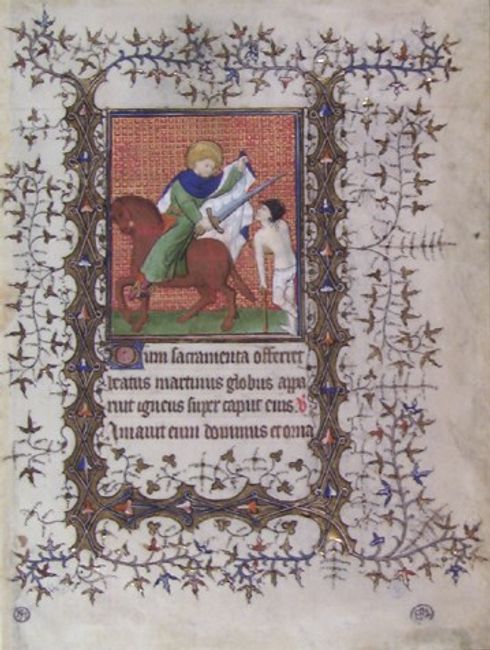 Dum sacramenta offerret
beatus martinus globus appa
ruit igneus super caput eius. V
Amauit eum dominus et orna